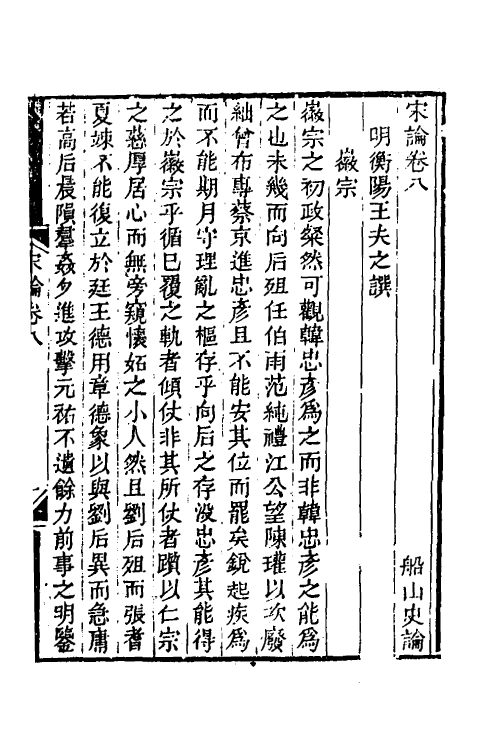 宋論卷八　船山史論
明衡陽王夫之譔
徽宗
徽宗之初政粲然可觀韓忠彥爲之而非韓忠彥之能爲
之也未幾而向后殂任伯雨范純禮江公望陳瓘以次廢
絀曾布專蔡京進忠彥且不能安其位而罷矣銳起疾爲
而不能期月守理亂之樞存乎向后之存沒忠彥其能得
之於徽宗乎循已覆之軌者傾仗非其所仗者躓以仁宗
之慈厚居心而無旁窺懷妬之小人然且劉后殂而張耆
夏竦不能復立於廷王德用章德象以與劉后異而急庸
若高后晨隕羣姦夕進攻擊元祐不遺餘力前事之明鑒
宋論卷八